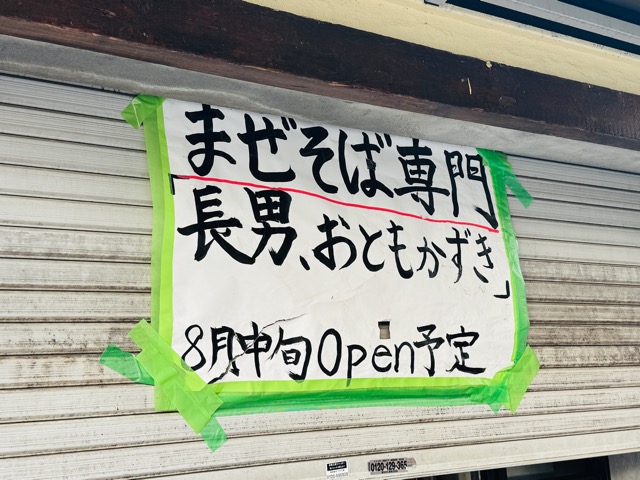 まぜそば専門
「長男、おともかずき」
8月中旬Open予定
0120-129-365